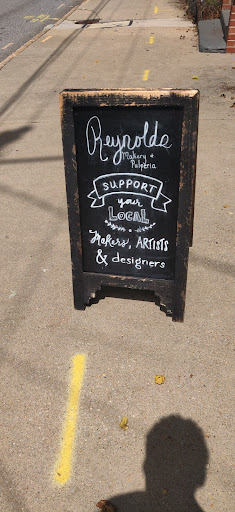 Reynolds
Makery &
Pulperia
SUPPORT
your
LOCAL
Makers, ARTISTS
& designers